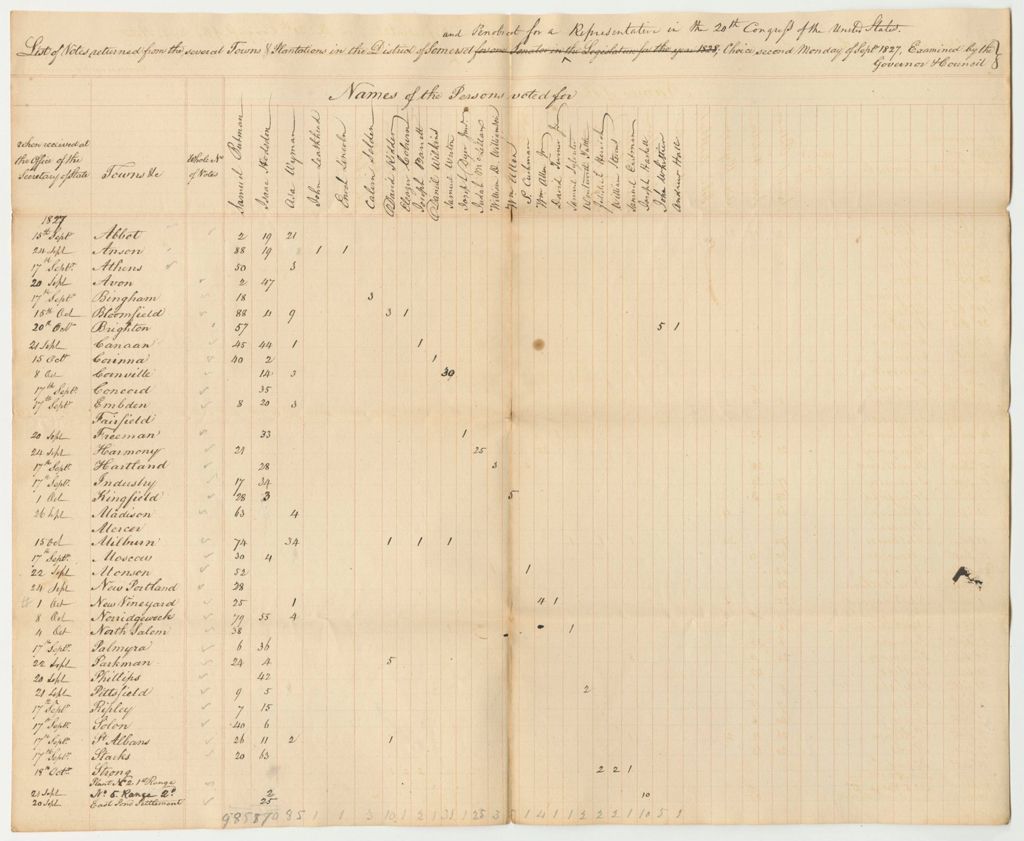 and Penobscot for a Representative in the 20th Congress of the United States.
List of Votes returned from the several Towns & Plantations in the District of Somerset for one Senator in the Legislature for the year 1828, Choice second Monday of Sept 1827, Examined by the
Governor & Council
Names of the Persons voted for
When received at the Office of the Secretary of State Towns &c Whole No of Votes Samuel Isaac Hodsdon Asa Wyman John Enoch Lincoln Calvin Selden David Kidder Eleazer Coburn Joseph Barrett Daniel Wilkins Samuel Weston Joseph Judah McLellan William D. Williamson Wm Allen P. Cushman Wm Allen Jr David Samuel William Samuel Eastman Joseph John Andrew Hall
1827
15th Sept Abbot 2 19 21
24 Sept Anson 88 19 1 1
17th Sept. Athens 50 3
20 Sept Avon 2 47
17th Sept. Bingham 18 3
15th Oct Bloomfield 88 4 9 3 1
20th Oct Brighton 57 5 1
21 Sept Canaan 45 44 1 1
15 Oct Corinna 40 2 1
8 Oct Cornville 14 3 30
17th Sept. Concord 35
17th Sept. Embden 8 20 3
Fairfield
20 Sept Freeman 33 1
24 Sept Harmony 21 25
17th Sept. Hartland 28 3
17th Sept. Industry 17 34
1 Oct Kingfield 28 3 5
26 Sept Madison 63 4
Mercer
15 Oct Milburn 74 34 1 1 1
17th Sept. Moscow 30 4
22 Sept Monson 52 1
24 Sept New Portland 28
1 Oct New Vineyard 25 1 4 1
8 Oct Norridgewock 79 55 4
4 Oct North Salem 38 1
17th Sept. Palmyra 6 36
22 Sept Parkman 24 4 5
20 Sept Phillips 42
21 Sept Pittsfield 9 5 2
17th Sept Ripley 7 15
17th Sept. Solon 40 6
17th Sept. St Albans 26 11 2 1
17th Sept. Starks 20 63
18th Oct. Strong 2 2 1
Plant No 2. 1st Range
21 Sept No 5. Range 2d 2 10
20 Sept East Pond Settlement 25
985 870 85 1 1 3 10 1 2 1 31 1 25 3 5 1 4 1 1 2 2 2 1 10 5 1